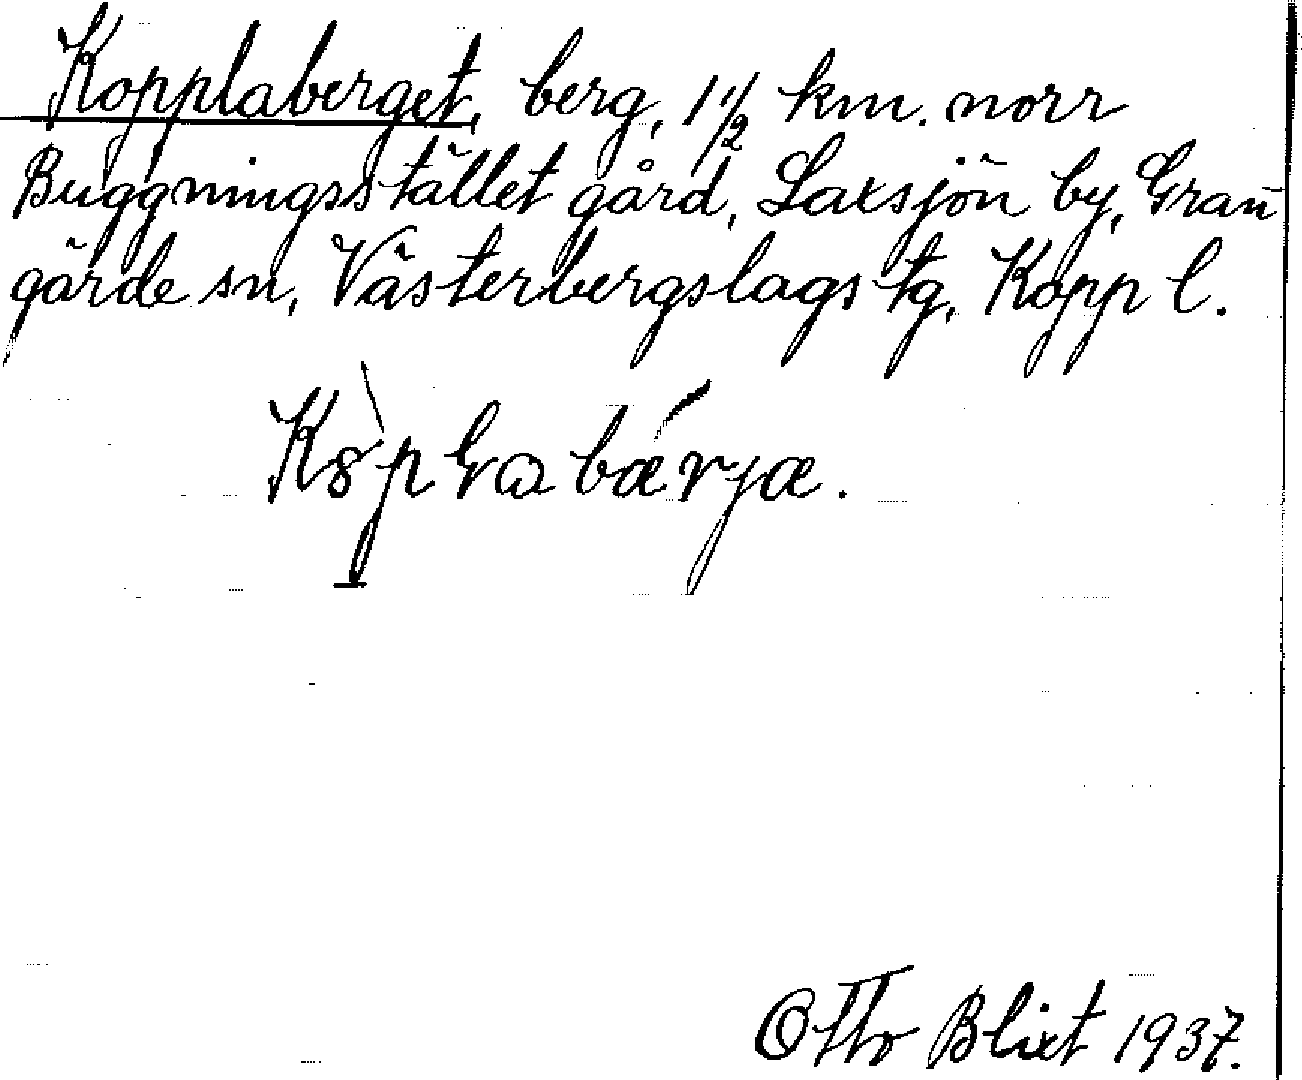 Kopplaberget, berg, 1 1/2 km. norr
Buggningsstället gård, Laxsjön by, Gran
gärde sn, Västerbergslags tg, Kopp l.
Kȣ̀pḷɷbǽrjæ.
Otto Blixt 1937.